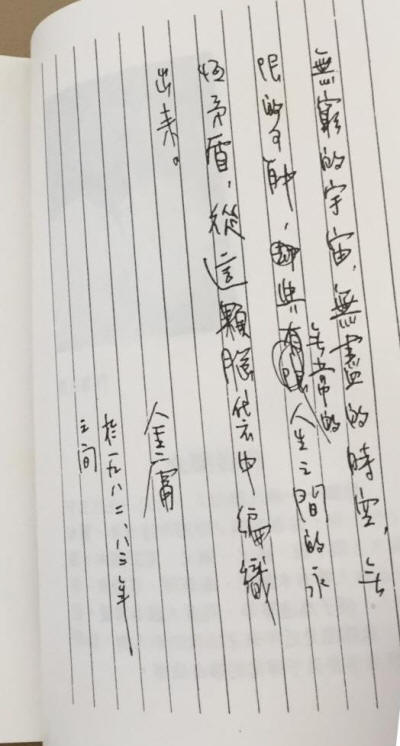 無窮的宇宙,無盡的時空,无
限的可能,與无常的人生之間的永
恆矛盾,從這顆腦袋中編織
出来。
金庸
於一九八二、八三年
之間